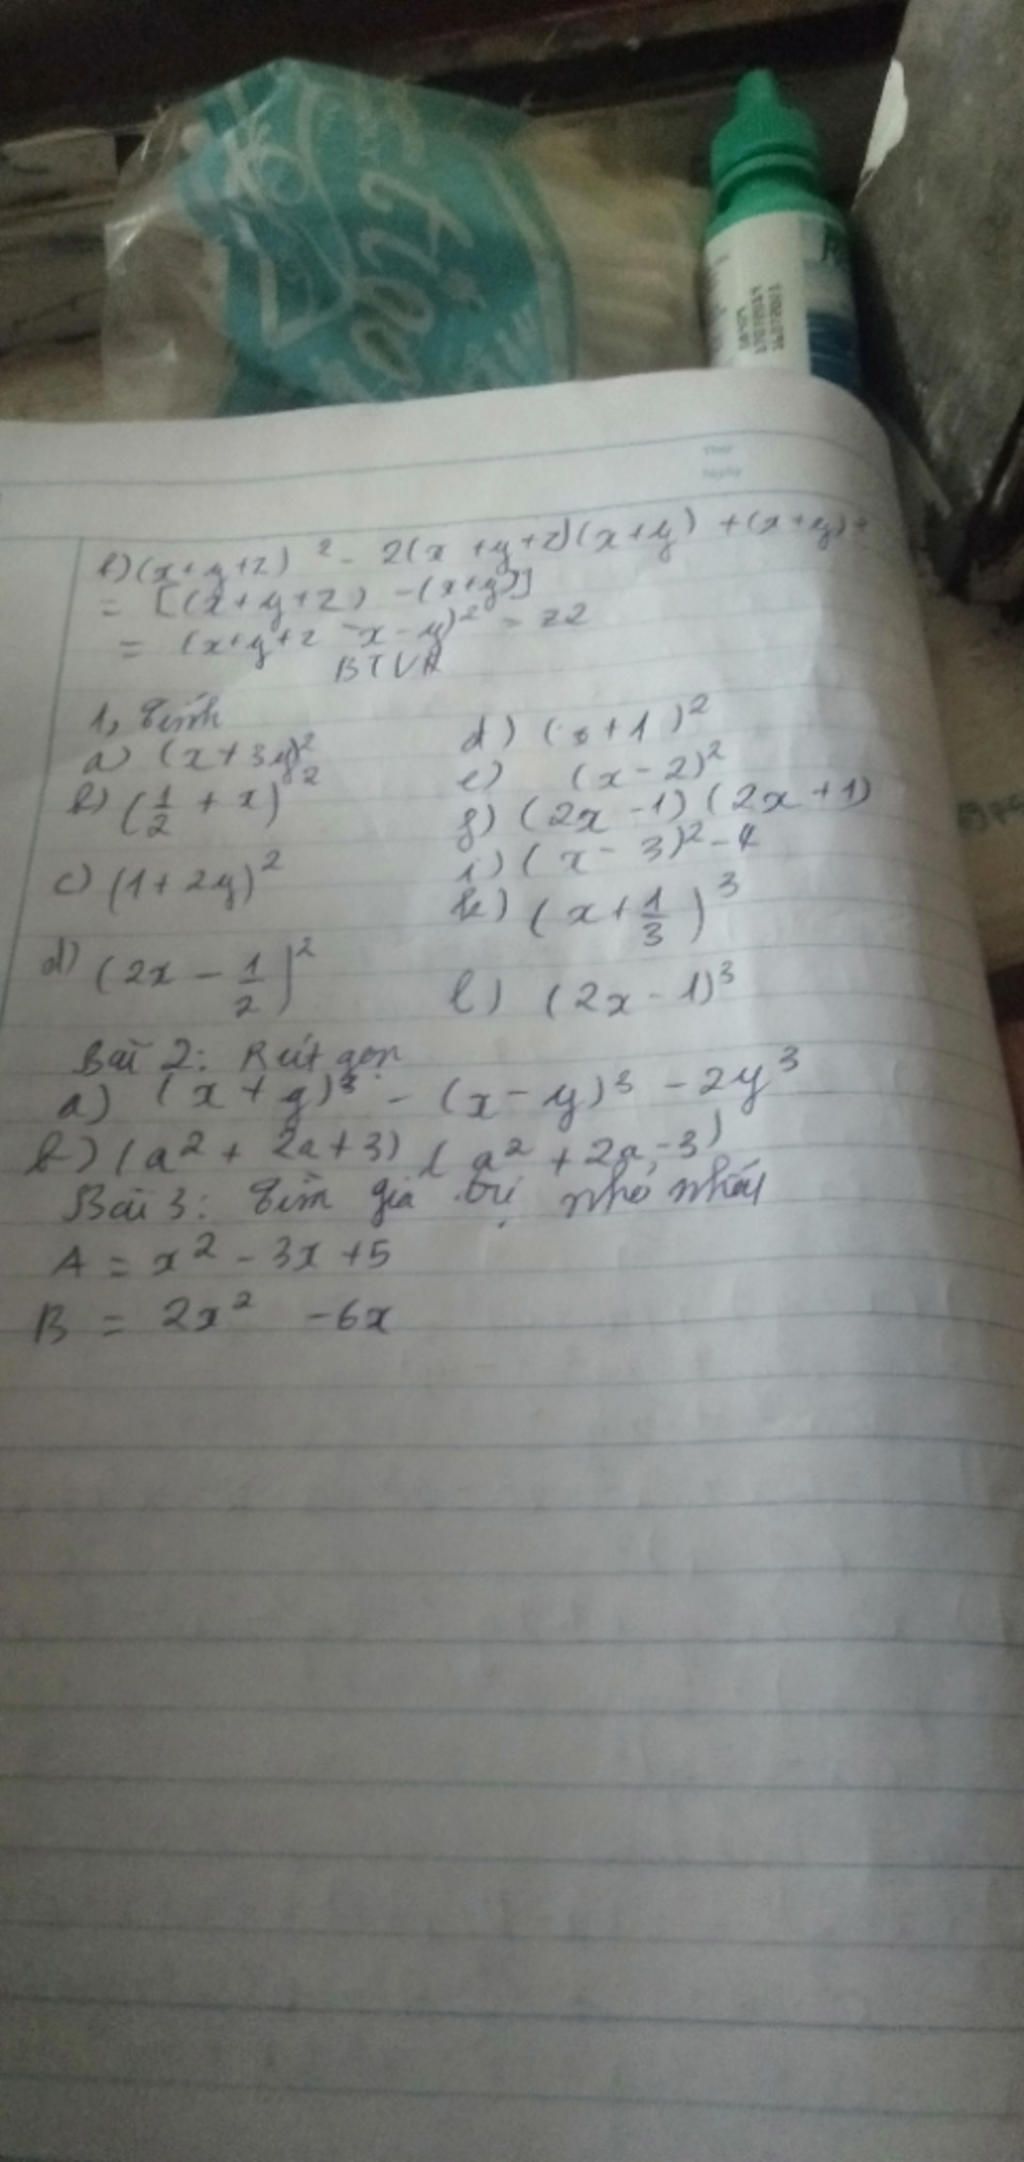 tiger
Thứ
Ngày
b) (x+y+z)² - 2(x+y+z)(x+y) + (x+y)²
= [(x+y+z) - (x+y)]
= (x+y+z - x - y)² = z2
BTVN
1, Tính
a) (x+3y)²
b) (1/2 + x)²
c) (1+2y)²
d) (2x - 1/2)²
d) (x+1)²
e) (x-2)²
g) (2x-1)(2x+1)
i) (x-3)²-4
k) (x+1/3)³
l) (2x-1)³
Bài 2: Rút gọn
a) (x+y)³ - (x-y)³ - 2y³
b) (a² + 2a+3) (a² + 2a-3)
Bài 3: Tìm giá trị nhỏ nhất
A = x² - 3x +5
B = 2x² - 6x